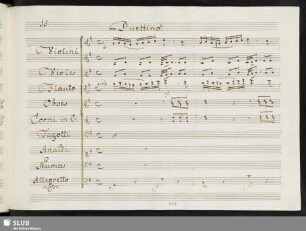 Duettino
Violini
Viole
Flauto
Oboe
Corni in G.
Fagotti
Anaide
Numa
Allegretto
SLUB
Wir führen Wissen.